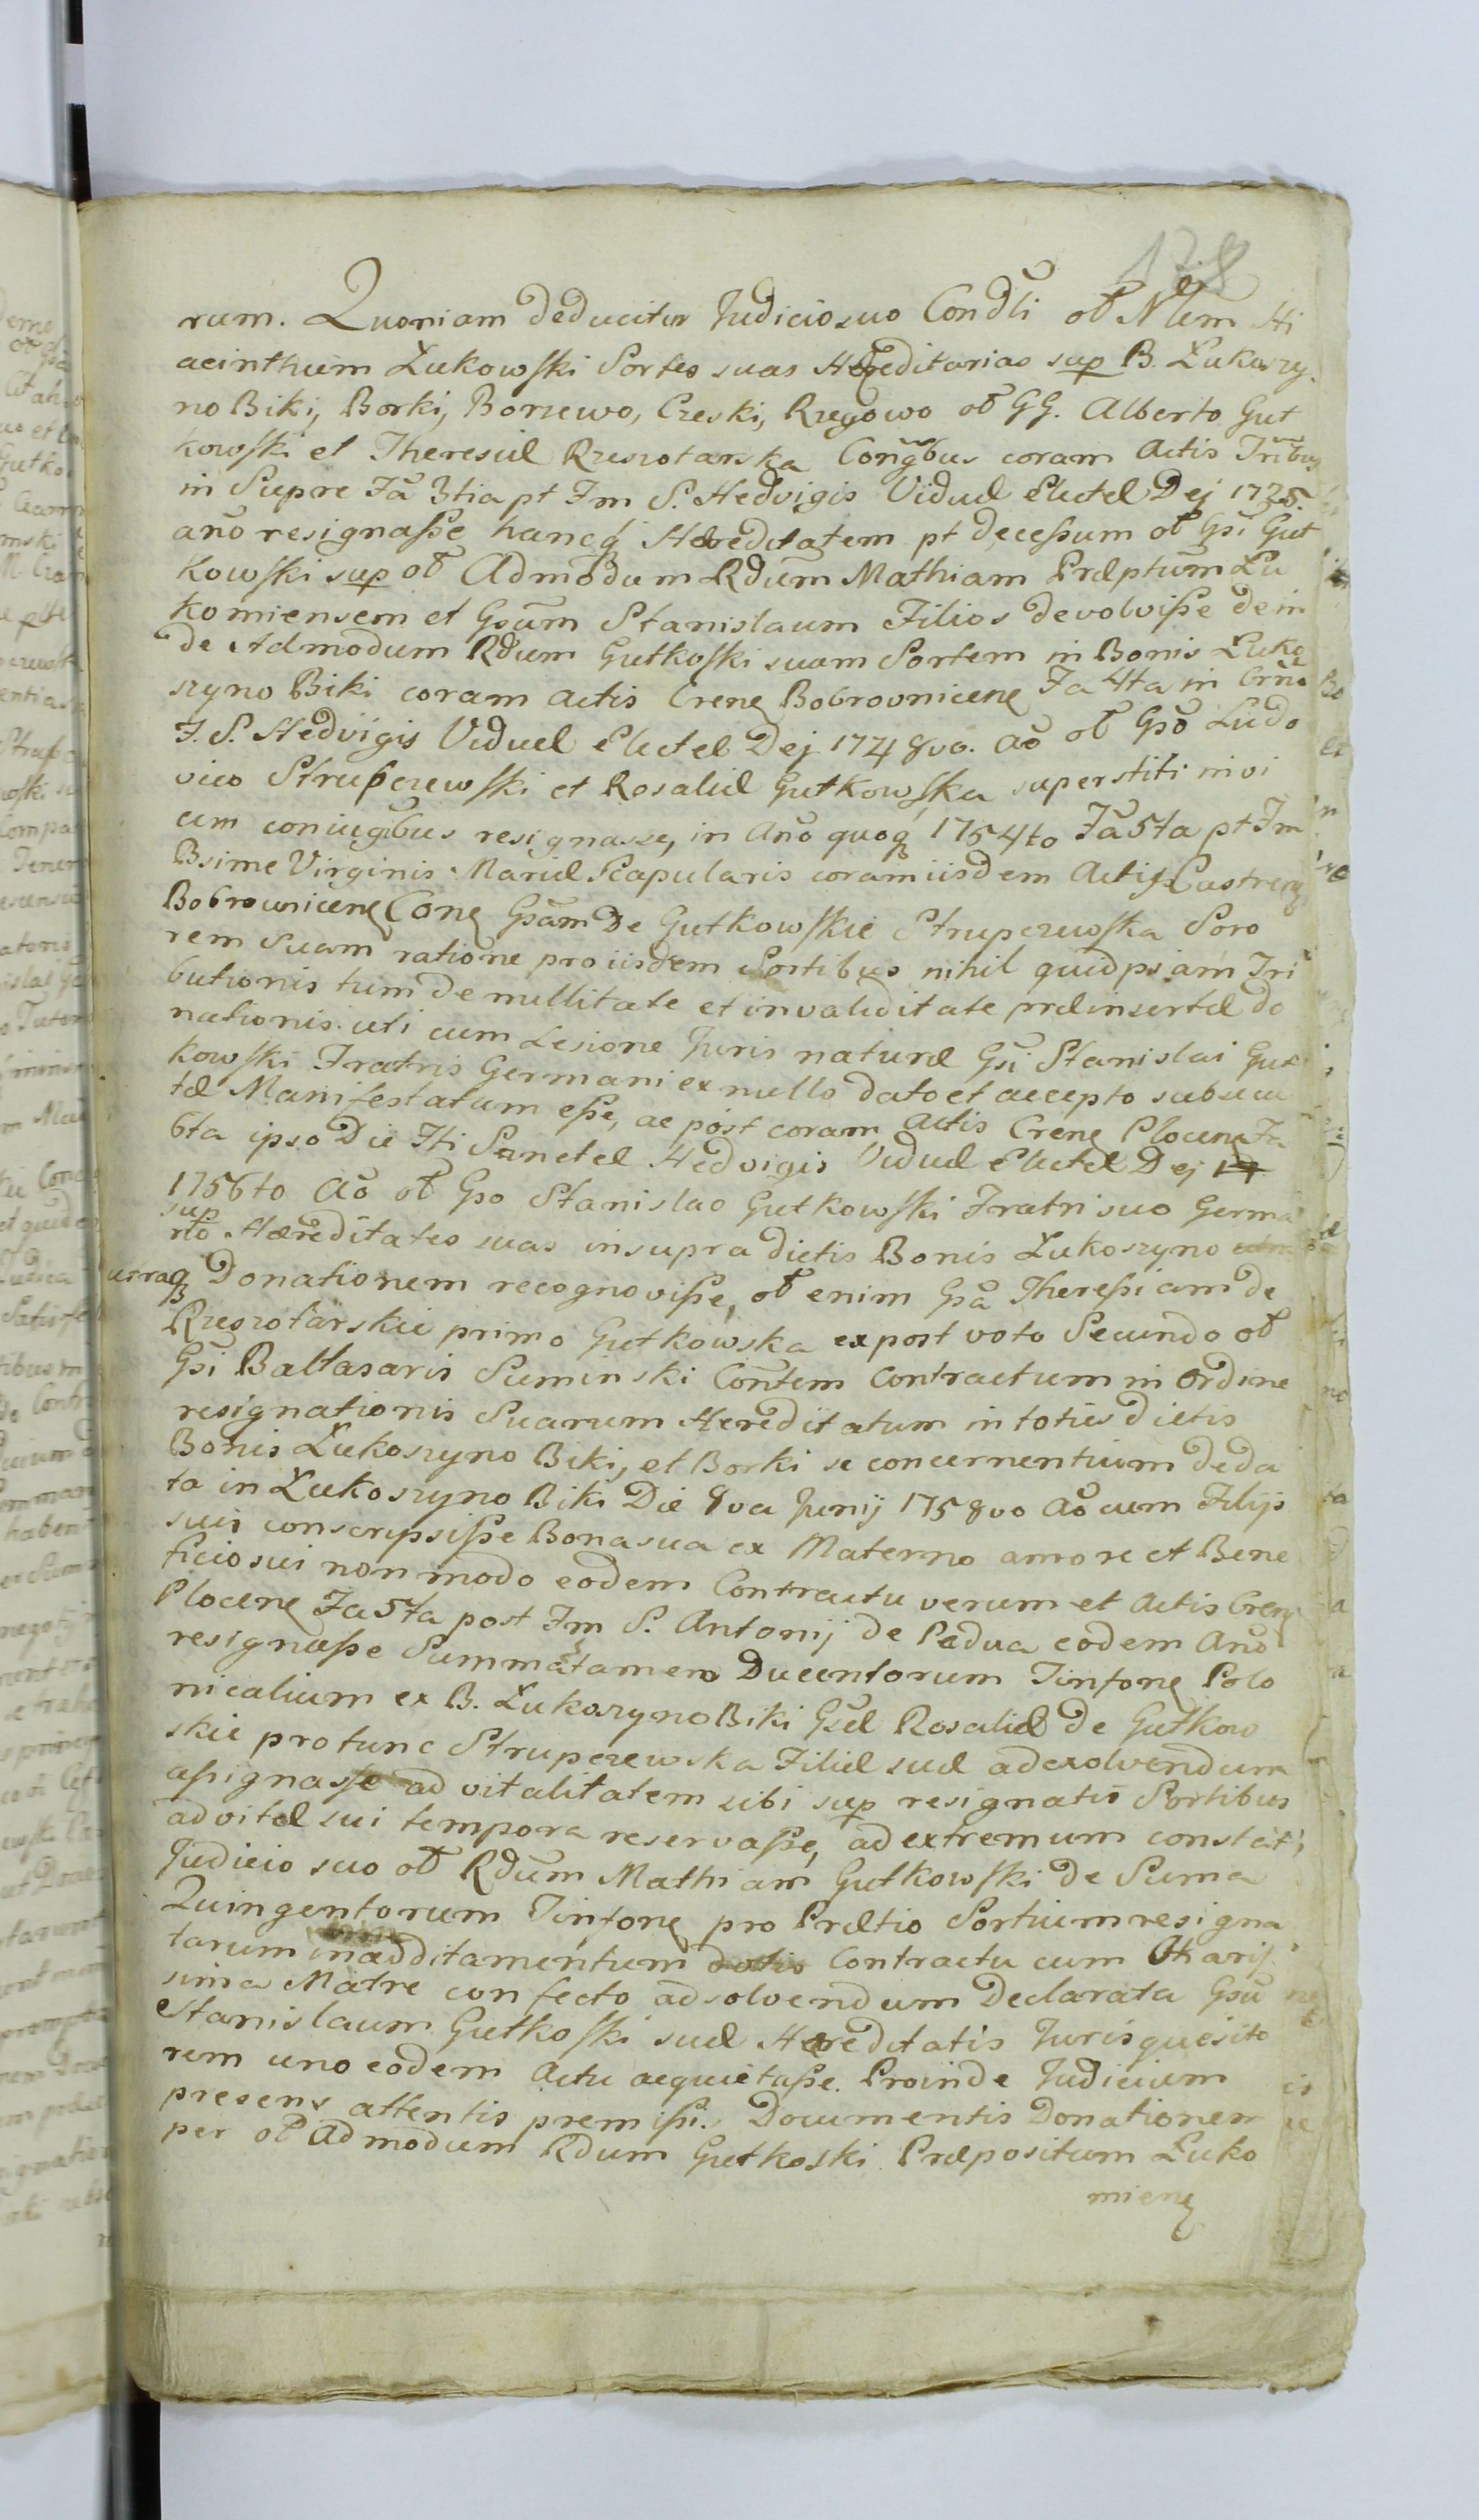 rum. Quoniam deducitur Judicio suo Condli ol Nlem Hi
acinthum Łukowski Sortes suas Hæreditarias sup B. Łukoszy
no Biki, Borki, Borzewo, Czeski, Rzegowo ol GG. Alberto Gut
kowski et Theresiæ Rzeszotarska Congbus coram Actis Tribus
in Supre Fa 3tia pt Fm S. Hedvigis Viduæ Electæ Dej 1725.
año resignaſse hancq Hæreditatem pt deceſsum ol Gsi Gut
kowski sup ol Admodum Rdum Mathiam Præptum Łu
komiensem et Gsum Stanislaum Filios devolviſse dein
de Admodum Rdum Gutkoſki suam Sortem in Bonis Łuko
szyno Biki coram Actis Crens Bobrovnicens Fa 4ta in Crño
F. S. Hedvigis Viduæ Electæ Dej 1748vo. aõ ol Gso Ludo
vico Strupczewſki et Rosaliæ Gutkowſka superstiti invi
cem coniugibus resignasse, in Año quoq 1754to Fa 5ta pt Fm
Bsime Virginis Mariæ Scapularis coram iisdem Actis Castrens
Bobrownicens Cons Gsam de Gutkowſkie Strupczewſka Soro
rem suam ratione pro iisdem Sortibus nihil quidpiam Tri
butionis tum de nullitate et invaliditate præinsertæ do
nationis uti cum Lesione Juris naturæ Gsi Stanislai Gut
kowſki Fratris Germani ex nullo dato et accepto subsecu
tæ Manifestatum eſse, ac post coram Actis Crens Plocens Fa
6ta ipso Die Fti Sanctæ Hedvigis Viduæ Electæ Dej 17
1756to Aõ ol Gso Stanislao Gutkowſki Fratri suo Germa
sup
rto Hæreditates suas in supra dictis Bonis Łukoszyno
utraq Donationem recognoviſse, ol enim Gsa Thereſiam de
Rzeszotarskie primo Gutkowska ex post voto Secundo ol
Gsi Baltasaris Suminski Contem Contractum in Ordine
resignationis Suarum Hereditatum in toties dictis
Bonis Łukoszyno Biki, et Borki se concernentium de da
ta in Łukoszyno Biki Die 8va Junij 1758vo Aõ cum Filijs
suis conscripsiſse Bona sua ex Materno amore et Bene
ficio sui non modo eodem Contractu verum et Actis Crens
Plocens Fa 5ta post Fm S. Antonij de Padua eodem Año
resignaſse Summa tamen Ducentorum Tinfons Polo
nicalium ex B. Łukoszyno Biki Gsæ Rosaliæ de Gutkow
skie pro tunc Strupczewska Filiæ suæ ad exolvendum
aſsignasse ad vitalitatem sibi sup resignatis Sortibus
ad vitæ sui tempora reservaſse, ad extremum constat
Judicio suo ol Rdum Mathiam Gutkowſki de Suma
Quingentorum Tinfons pro Prætio Sortium resigna
tarum in additamentum Contractu cum Chariſ
sima Matre confecto ad solvendum Declarata Gsu
Stanislaum Gutkoſki suæ Hæreditatis Juris quesito
rem uno eodem Actu acquietaſse. Proinde Judicium
presens attentis premiſsi. Documentis Donationem
per ol Admodum Rdum Gutkoski Præpositum Łuko
miens